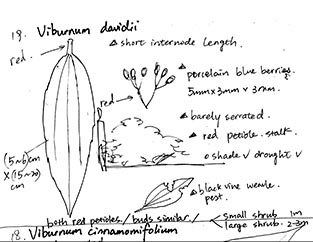 19. Viburnum davidii
△ short internode length.
red.
△ porcelain blue berries
5mm x 3mm x 3mm
red
△ barely serrated.
△ red petible. stalk.
○ shade √ drought √
(5~6)cm
X (15~20)
cm
△ black vine weevle.
pest.
both red petibles / buds similar /
small shrub 1m
large shrub 2-3m
18. Viburnum cinnamomifolium